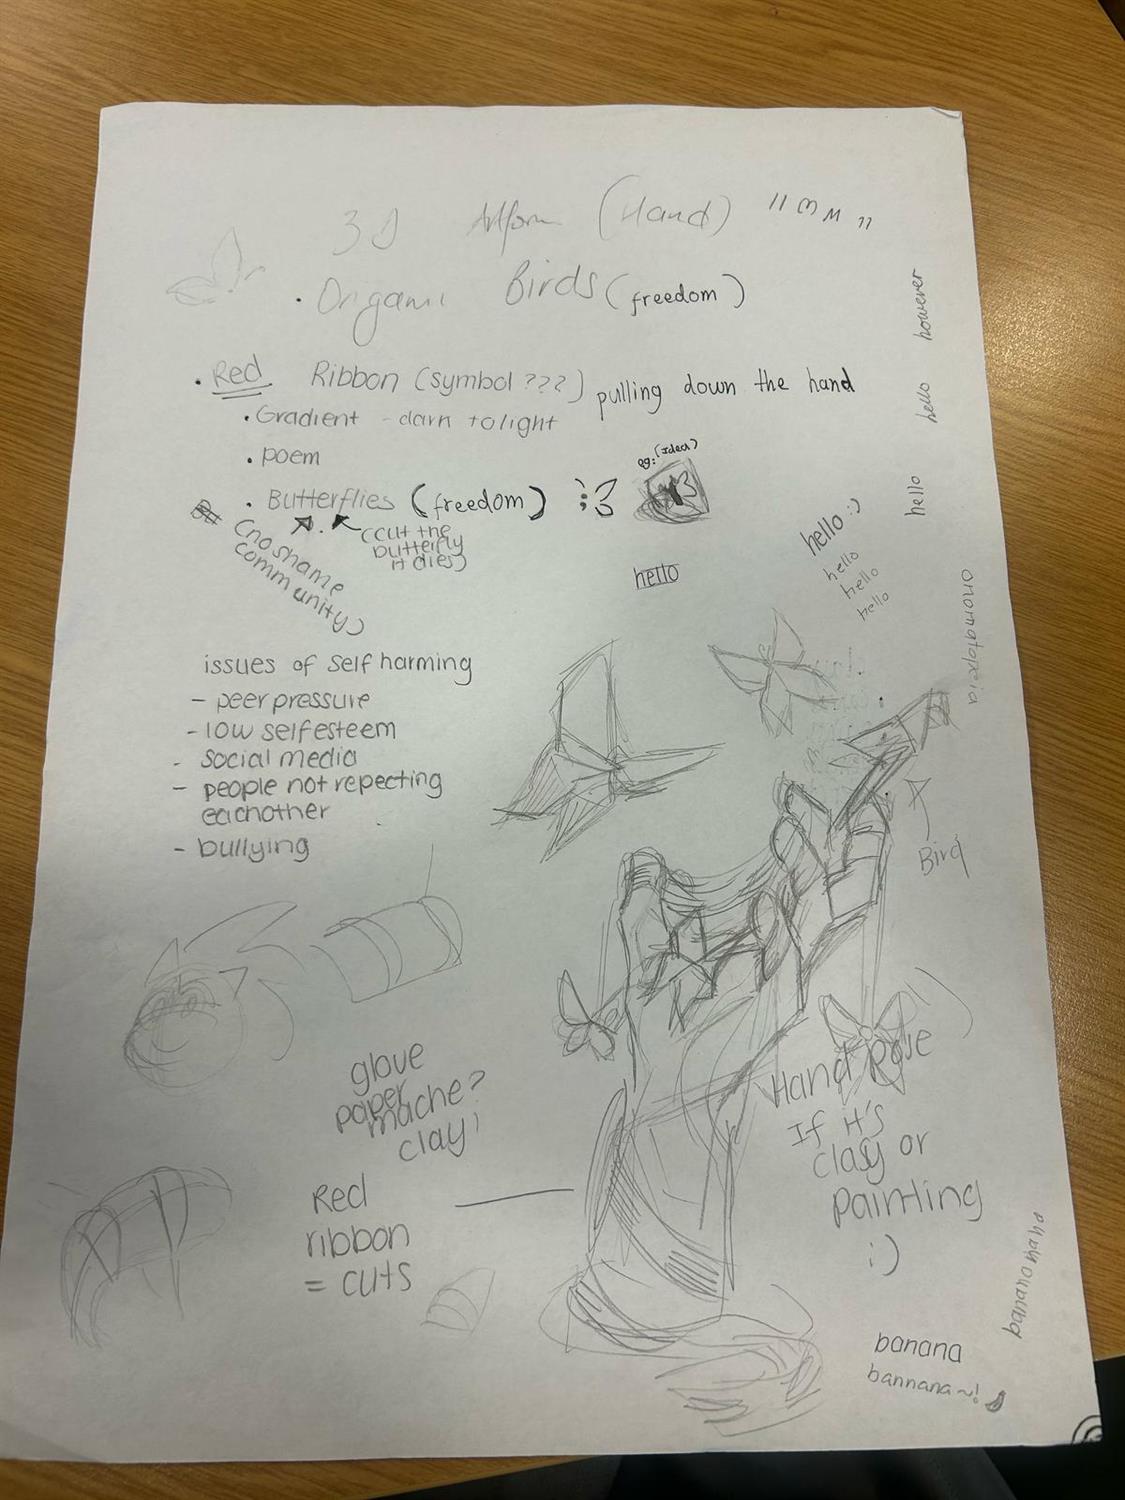 3D Artform (Hand)
• Origami Birds (freedom)
• Red Ribbon (symbol ???) pulling down the hand
• Gradient - darn to light
• poem
eg: (idea)
• Butterflies (freedom)
(cut the
butterfly
it dies)
(no shame
community)
hello
hello :)
hello
hello
hello
hello
hello
however
onomatopeia
issues of self harming
- peer pressure
- low self esteem
- social media
- people not repecting
eachother
- bullying
Bird
glove
paper
mache?
clay!
Red
ribbon
= cuts
Hand pose
If it's
clasy or
painting
:)
banana
bannana~!